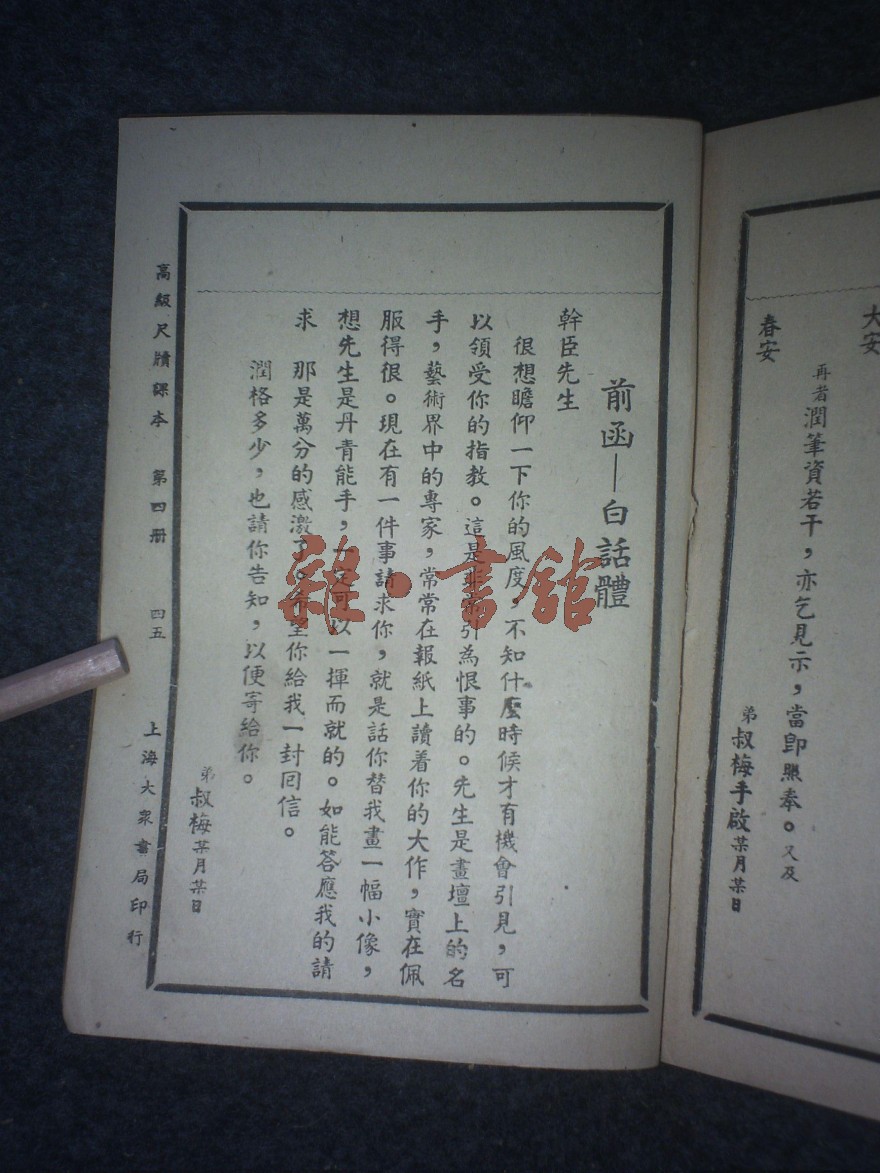 大安
再者潤筆資若干，亦乞見示，當卽照奉。又及
春安
弟叔梅手啟某月某日
前函—白話體
幹臣先生
很想瞻仰一下你的風度，不知什麼時候才有機會引見，可
以領受你的指教。這是非常引為恨事的。先生是畫壇上的名
手，藝術界中的專家，常常在報紙上讀着你的大作，實在佩
服得很。現在有一件事請求你，就是話你替我畫一幅小像，
想先生是丹青能手，一定可以一揮而就的。如能答應我的請
求　那是萬分的感激了。希望你給我一封回信。
潤格多少，也請你告知，以便寄給你。
弟叔梅某月某日
高級尺牘課本　第四册　四五　上海大衆書局印行
雜·書館